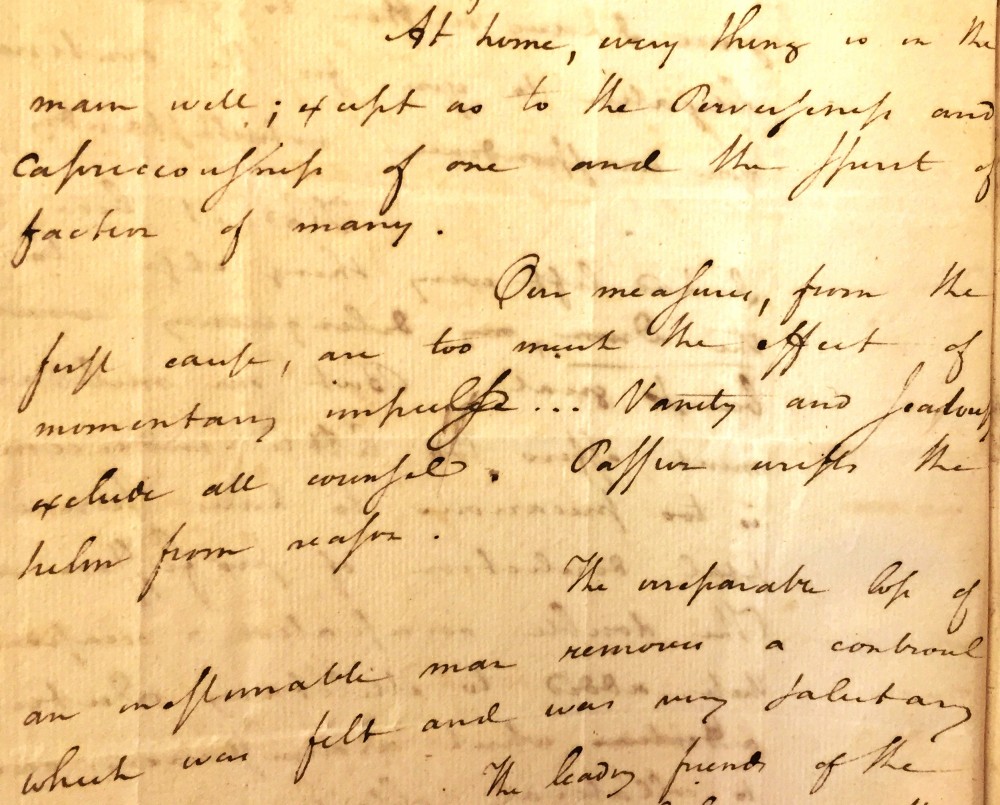 At home, every thing is in the
main well; except as to the Perverseness and
Capriciousness of one and the spirit of
faction of many.
Our measures, from the
first cause, are too much the effect of
momentary impulse... Vanity and Jealousy
exclude all counsel. Passion wrests the
helm from reason.
The irreparable loss of
an inestimable man removes a controul
which was felt and was very salutary
The leading friends of the